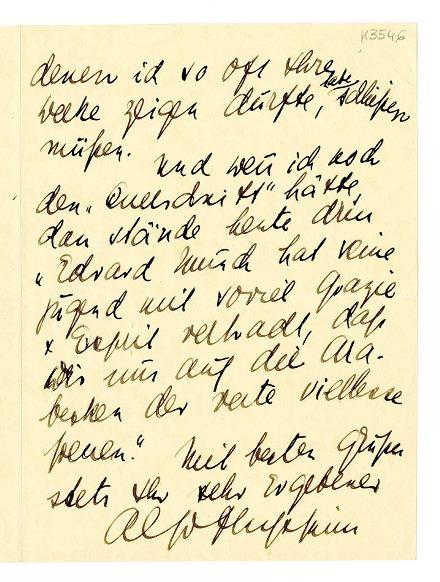 K3546
denen ich so oft Ihre
Werke zeigen durfte, habe schließen
müßen. Und wen̄ ich noch
den „Querschnitt" hätte,
dan stände heute drin
„Edvard Munch hat seine
Jugend mit soviel Grazie
& Esprit verbracht, daß
wir uns auf die Ara-
besken der verte viellesse
freuen." Mit besten Grüßen
stets Ihr sehr Ergebener
Flechtheim